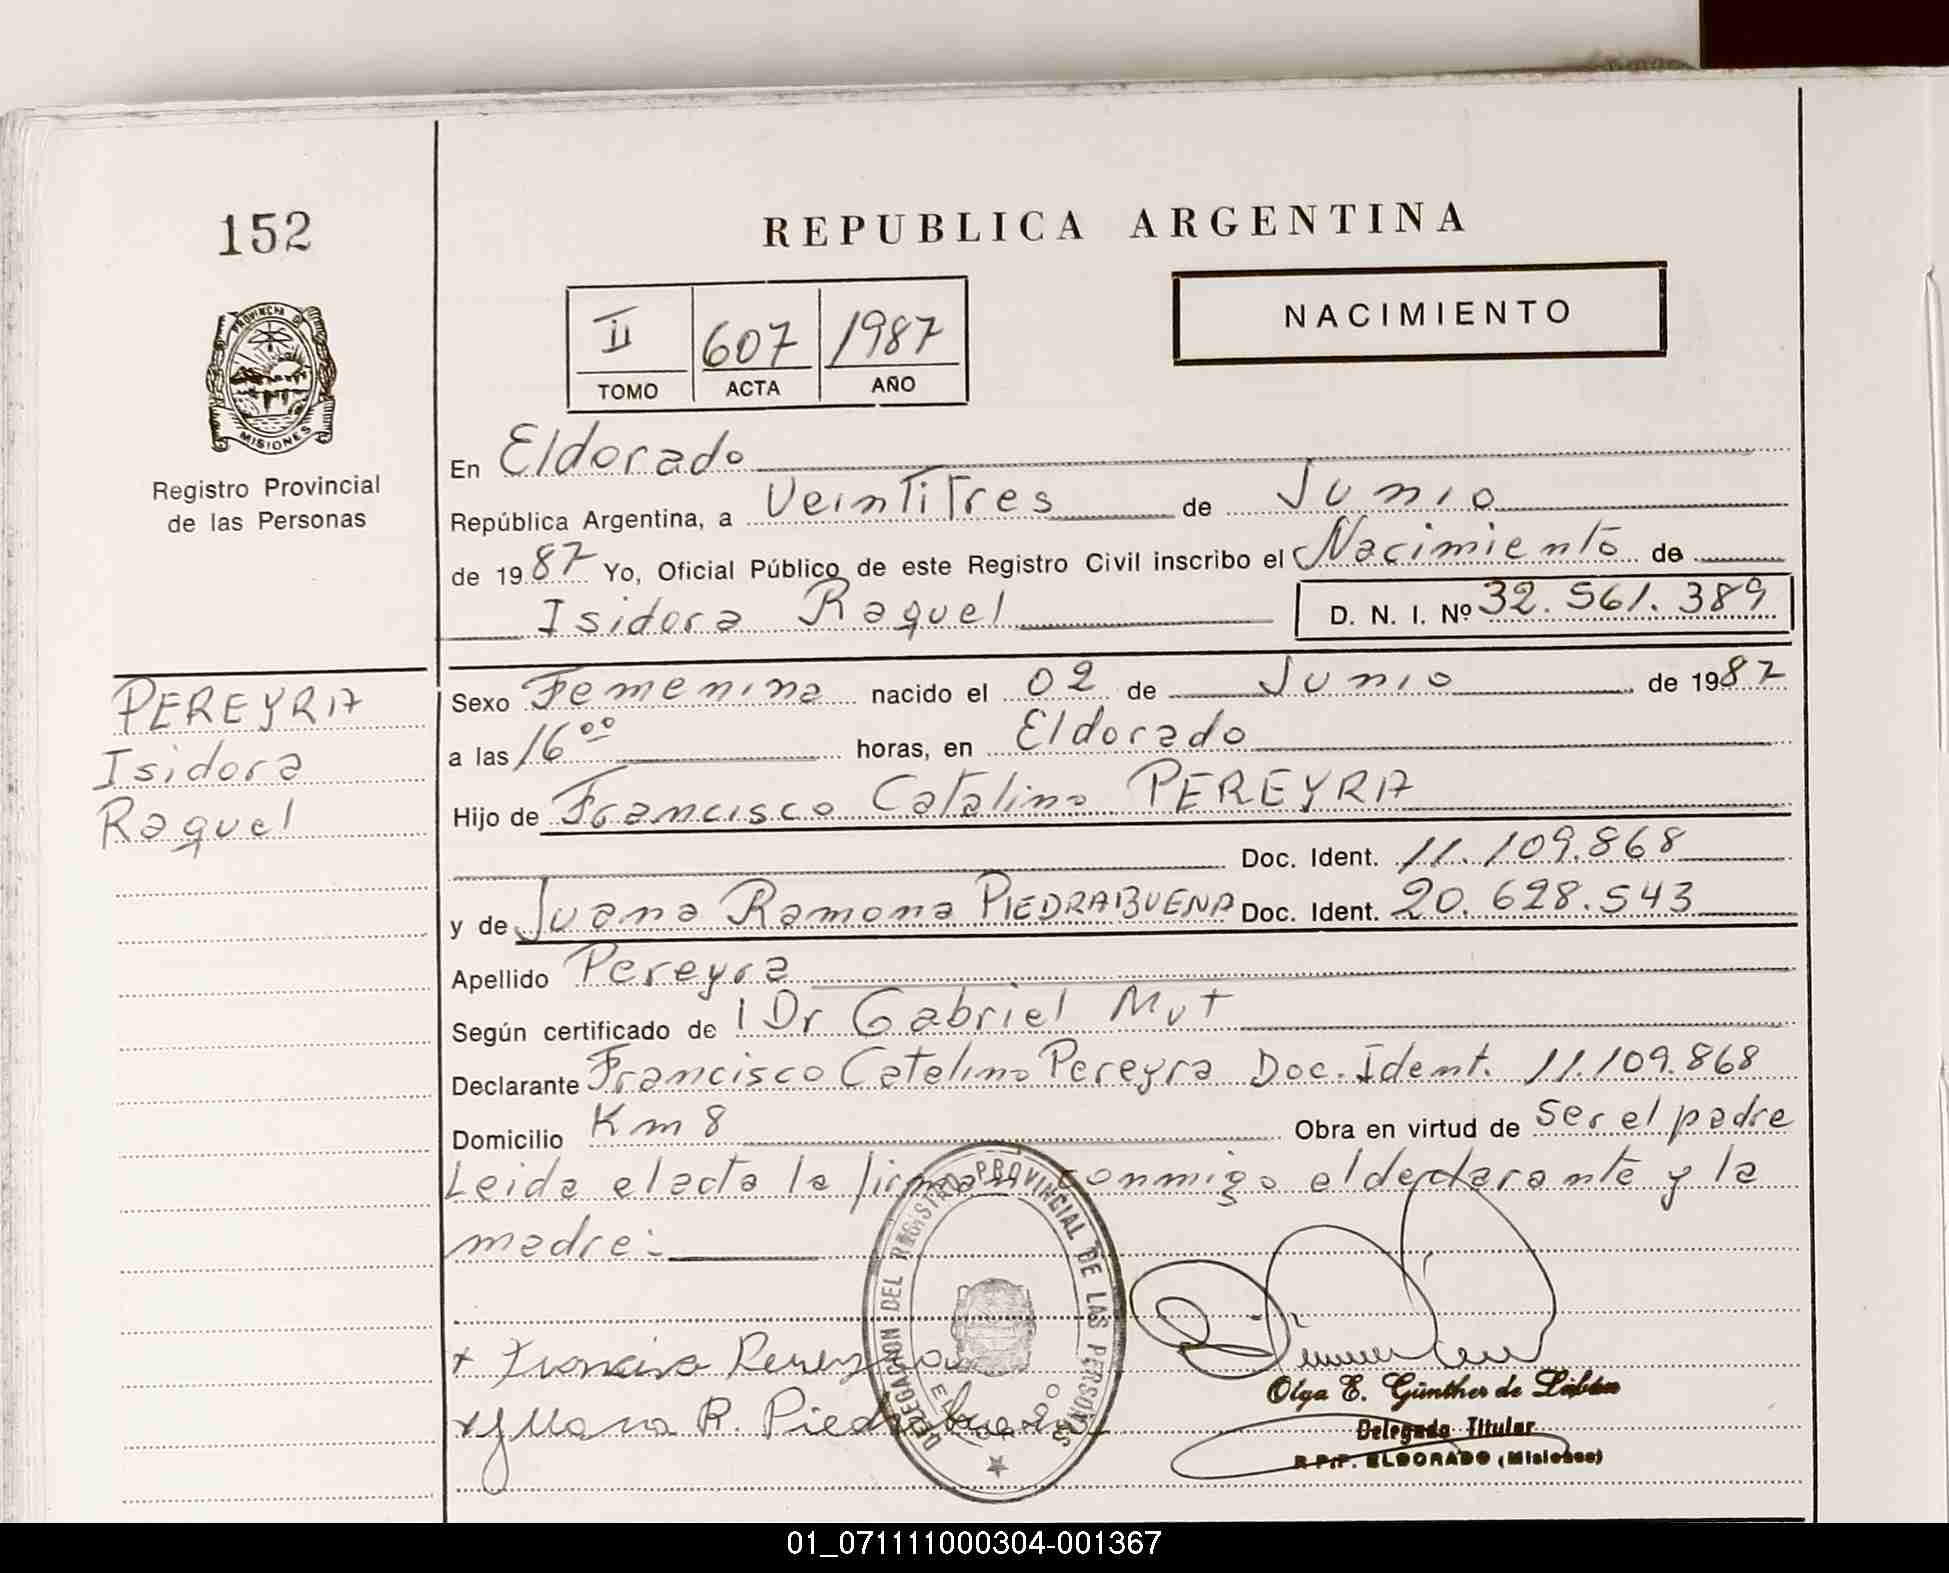 152
REPUBLICA ARGENTINA
NACIMIENTO
II 607 1987
TOMO ACTA AÑO
PROVINCIA DE
MISIONES
Registro Provincial
de las Personas
En Eldorado
República Argentina, a Veintitres de Junio
de 1987 Yo, Oficial Público de este Registro Civil inscribo el Nacimiento de
Isidora Raquel D. N. I. Nº 32.561.389
PEREYRA
Isidora
Raquel
Sexo Femenina nacido el 02 de Junio de 1987
a las 16 00 horas, en Eldorado
Hijo de Francisco Catalino PEREYRA
Doc. Ident. 11.109.868
y de Juana Ramona PIEDRABUENA Doc. Ident. 20.628.543
Apellido Pereyra
Según certificado de l Dr Gabriel Mut
Declarante Francisco Catalino Pereyra Doc. Ident. 11.109.868
Domicilio Km 8 Obra en virtud de ser el padre
Leida el acta la firman conmigo el declarante y la
madre:
DELEGACION DEL REGISTRO PROVINCIAL DE LAS PERSONAS
ELDORADO
x Francisco Pereyra
x Juana R. Piedrabuena
Olga E. Günther de
Delegada Titular
R.P.P. ELDORADO (Misiones)
01_071111000304-001367